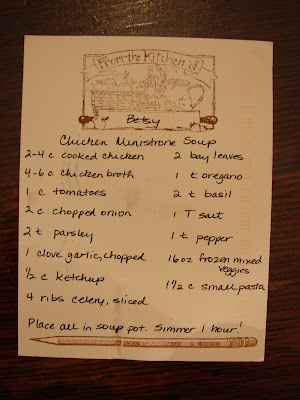 From the Kitchen of
Betsy
Chicken Ministrone Soup
2-4 c cooked chicken
4-6 c chicken broth
1 c tomatoes
2 c chopped onion
2 t parsley
1 clove garlic, chopped
1/2 c ketchup
4 ribs celery, sliced
2 bay leaves
1 t oregano
2 t basil
1 T salt
1 t pepper
16 oz frozen mixed
veggies
1 1/2 c small pasta
Place all in soup pot. Simmer 1 hour!